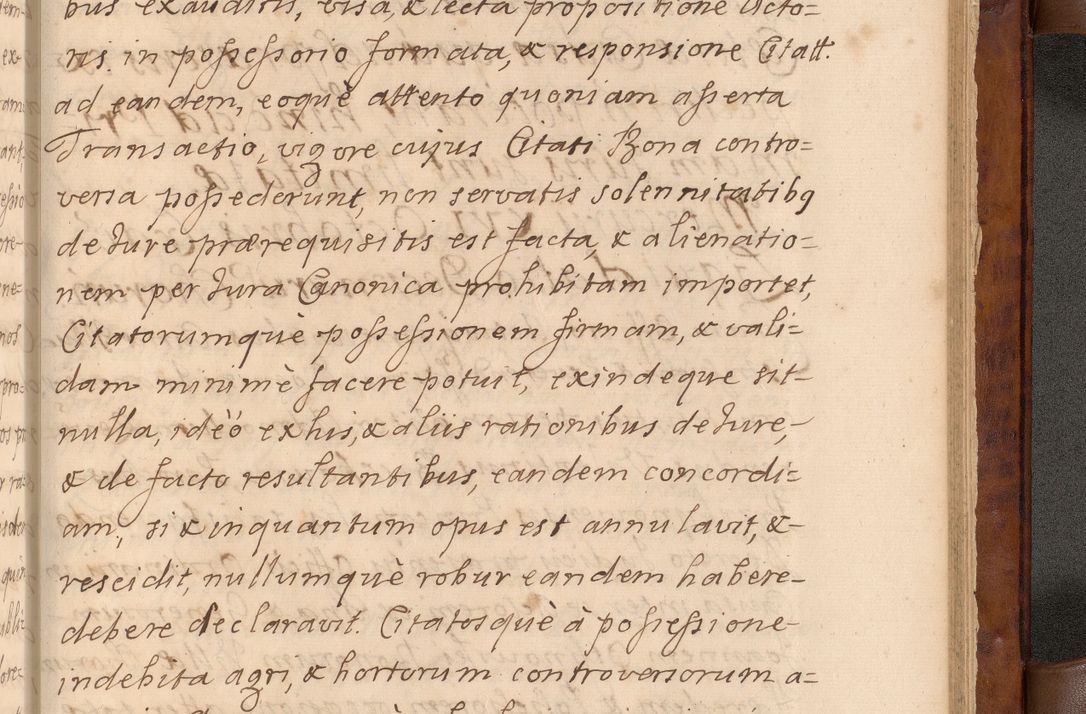 bus exauditis, visa, & lecta propositione Acto=
ris in possessorio formata, & responsione Citatt.
ad eandem, eoquè attento quoniam asserta
Transactio, vigore cujus Citati Bona contro=
versa possederunt, non servatis solennitatibq
de Jure prærequisitis est facta, & alienatio=
nem per Jura Canonica prohibitam importet,
Citatorumquè possessionem firmam, & vali=
dam minimè facere potuit, exindeque sit
nulla, idèò ex his, & aliis rationibus de Jure,
& de facto resultantibus, eandem concordi=
am, si & inquantum opus est annulavit, &
rescidit, nullumquè robur eandem habere
debere declaravit. Citatosquè à possessione
indebita agri, & hortorum controversorum a=